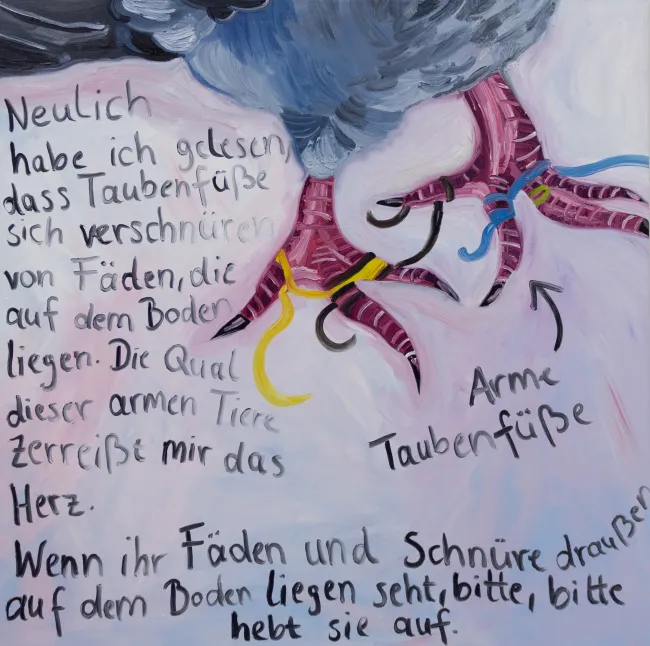 Neulich
habe ich gelesen,
dass Taubenfüße
sich verschnüren
von Fäden, die
auf dem Boden
liegen. Die Qual
dieser armen Tiere
zerreißt mir das
Herz.
Arme
Taubenfüße
Wenn ihr Fäden und Schnüre draußen
auf dem Boden liegen seht, bitte, bitte
hebt sie auf.